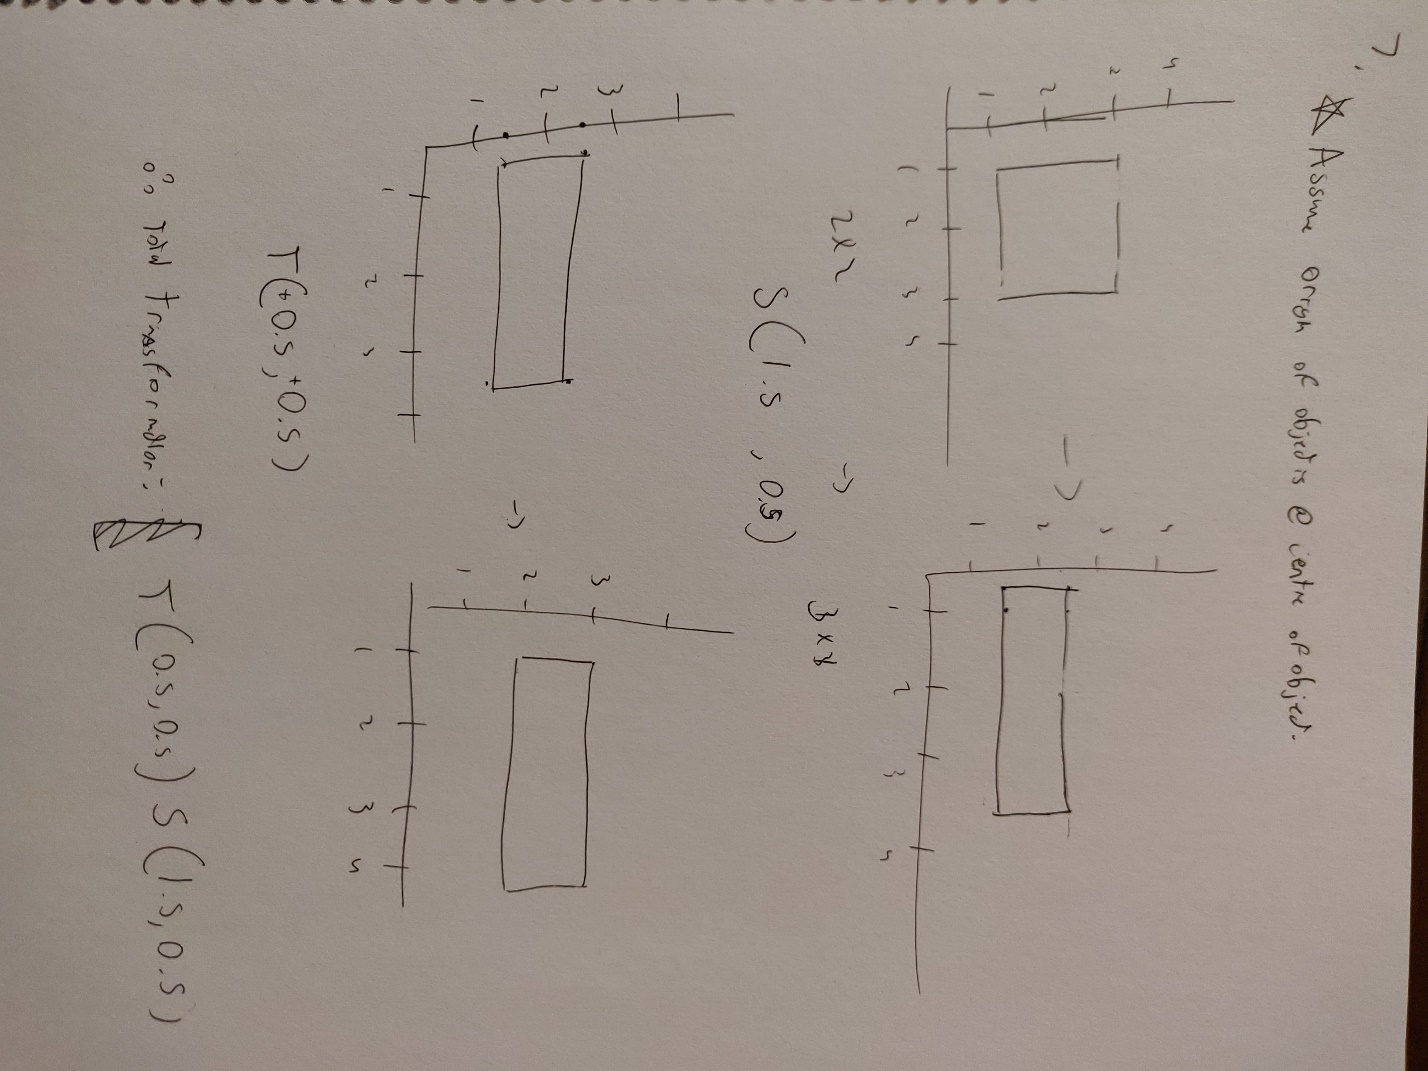 7.
☆ Assume origin of object is @ centre of object.
4
2
2
1
1 2 3 4
→
4
3
2
1
1 2 3 4
2x2 → 3x
S(1.5, 0.5)
3
2
1
1 2
→
3
2
1
1 2 3 4
T(+0.5, +0.5)
∴ Total transformation: T(0.5, 0.5) S(1.5, 0.5)